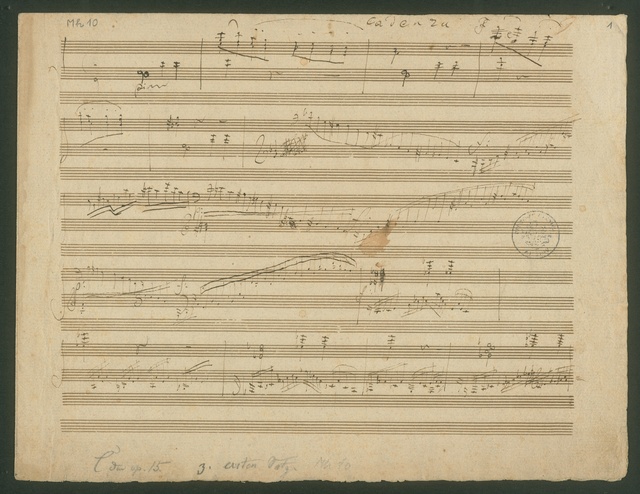 Mh 10 Cadenza 1
C dur op. 15. z. ersten Satz. Mh 10